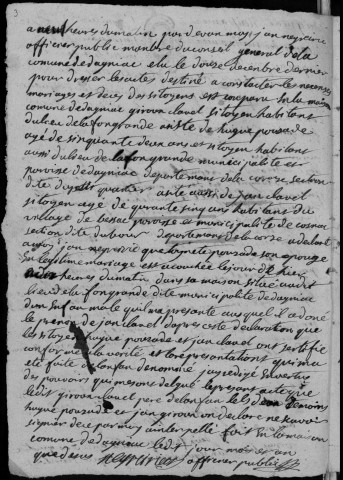 a neuf heures du matin par devan moy jan neyrivie
officier public manbre du conseil general de la
comune de dagniac elu le douse decenbre dernier
pour dreser les actes destiné a constater les necences
mariages et deces des sitoyens est conparu en la maison
comune de dagniac giroux clavel sitoyen habitans
du lieu de la fongrande asisté de hugue pousade
agé de sinquante deux ans et sitoyen habitans
aussi du lieu de la fongrande municipalité et
parroise de dagniac departement de la corese section
dite du petit quartier asisté aussi de jan clavel
sitoyen agé de quarante sinq ans habitans du
village de bessac parroise et municipalité de cosnac
section dite du bour departement de la corese a declaré
a moy jan neyrivie que toinete pousade son epouse
en legitime mariage est acouchée le jour de hier
heures du matin dans sa maison situé audit
lieu de la fongrande dite municipalité de dagniac
d'un enfan male qui ma presanté auquel il a doné
le prenon de jan clavel d'apres cete declaration que
les sitoyens hugue pousade et jan clavel ont sertifié
conforme a la verité et la representations qui ma
eté faite de lenfan denomé jay redigé en vertus
des pouvoirs qui me sons delegué le presant acte que
ledit giroux clavel pere de lenfan les deux temoins
hugue pousade et jan giroux on declaré ne savoir
signer de ce par moy interpellé fait en la maison
comune de dagniac ledit jour mois et an
que desus neyrivier officier public